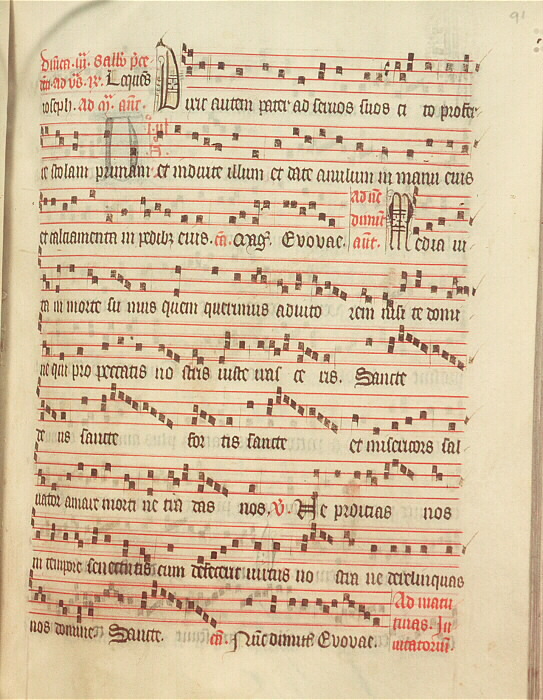 91
Dnica. iij. Sabb'o p'ce
dn. ad vs. R. Loques
ioseph. Ad m. ant.
Dicit autem pater ad servos suos ci to profer
te stolam primam et induite illum et date anulum in manu eius
et calciamenta in pedib' eius. ca. mag. Evovae. ad nc
dimitt
ant. Media vi
ta in morte su mus quem querimus adiuto rem nisi te domi
ne qui pro peccatis no stris iuste iras ce ris. Sancte
de us sancte for tis sancte et misericors sal
vator amare morti ne tra das nos. V. Ne proicias nos
in tempore senectutis cum defecerit virtus no stra ne derelinquas
nos domine Sancte. ca. Nuc dimitt' Evovae. Ad matu
tinas. In
vitatorium